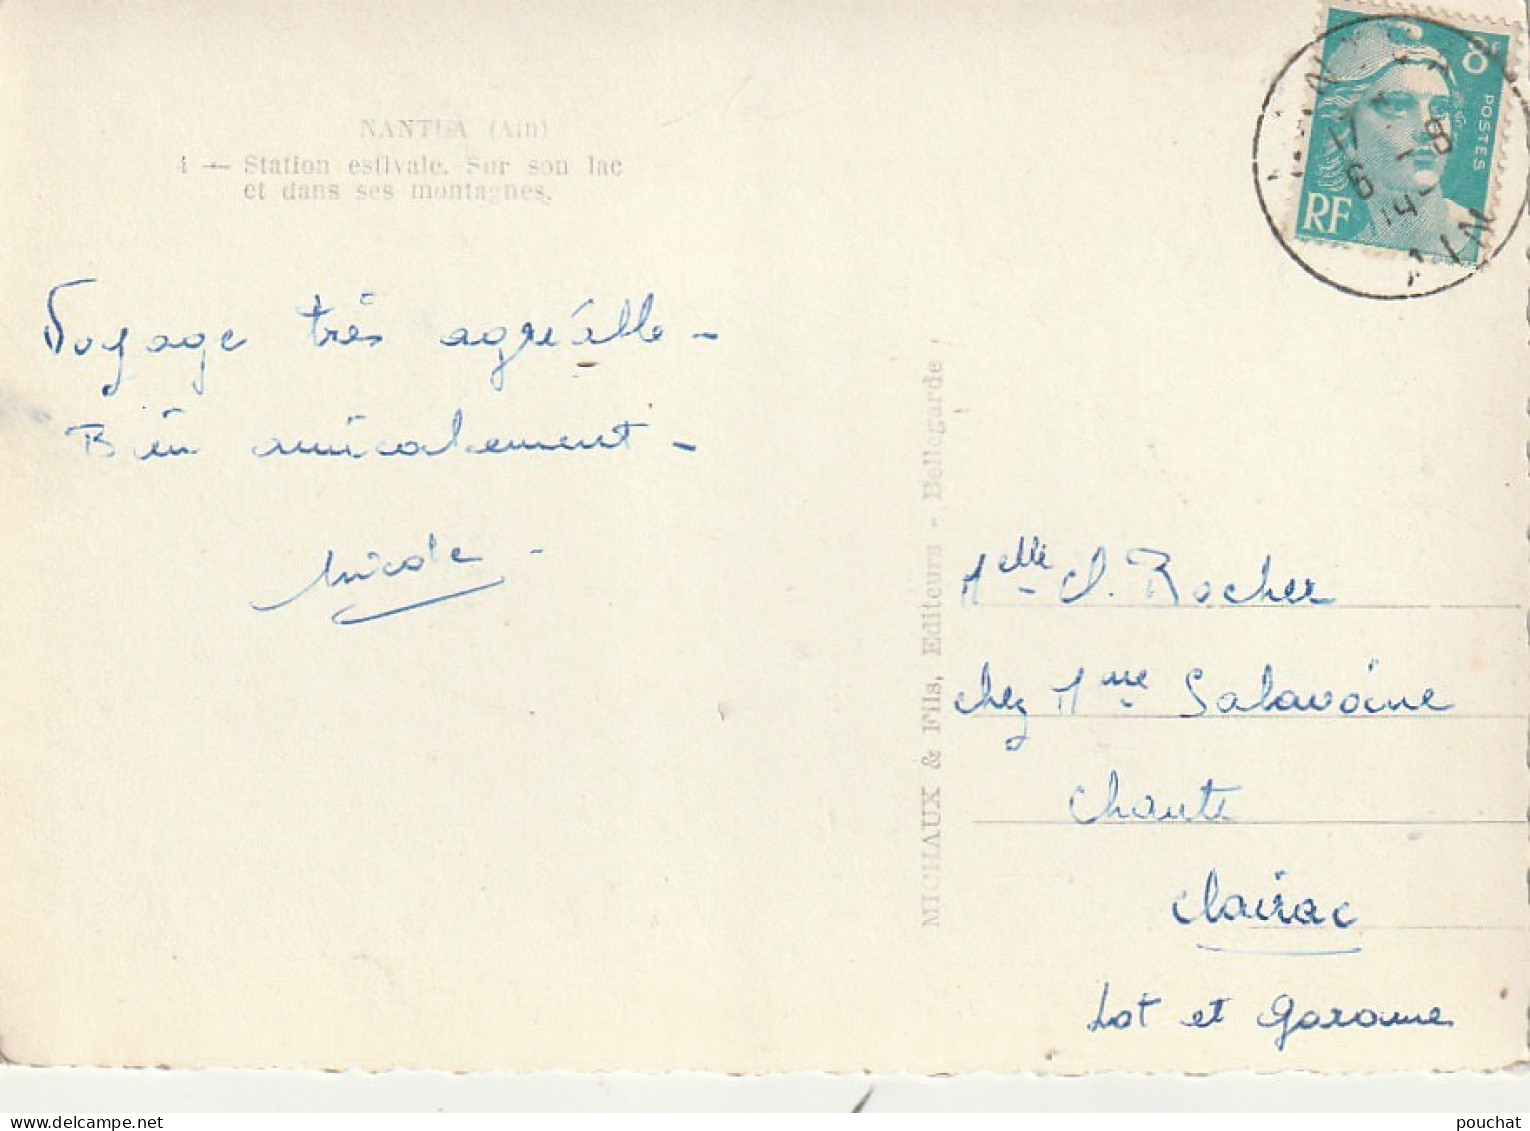 NANTUA (Ain)
4 — Station estivale. Sur son lac
et dans ses montagnes.
Voyage très agréable -
Bien amicalement -
Nicole -
MICHAUX & Fils, Editeurs - Bellegarde
8F
POSTES
RF
17
6 - 8
19
AIN
Melle J. Rocher
chez Mme Salavoine
Chante
Clairac
Lot et Garonne
pouchat